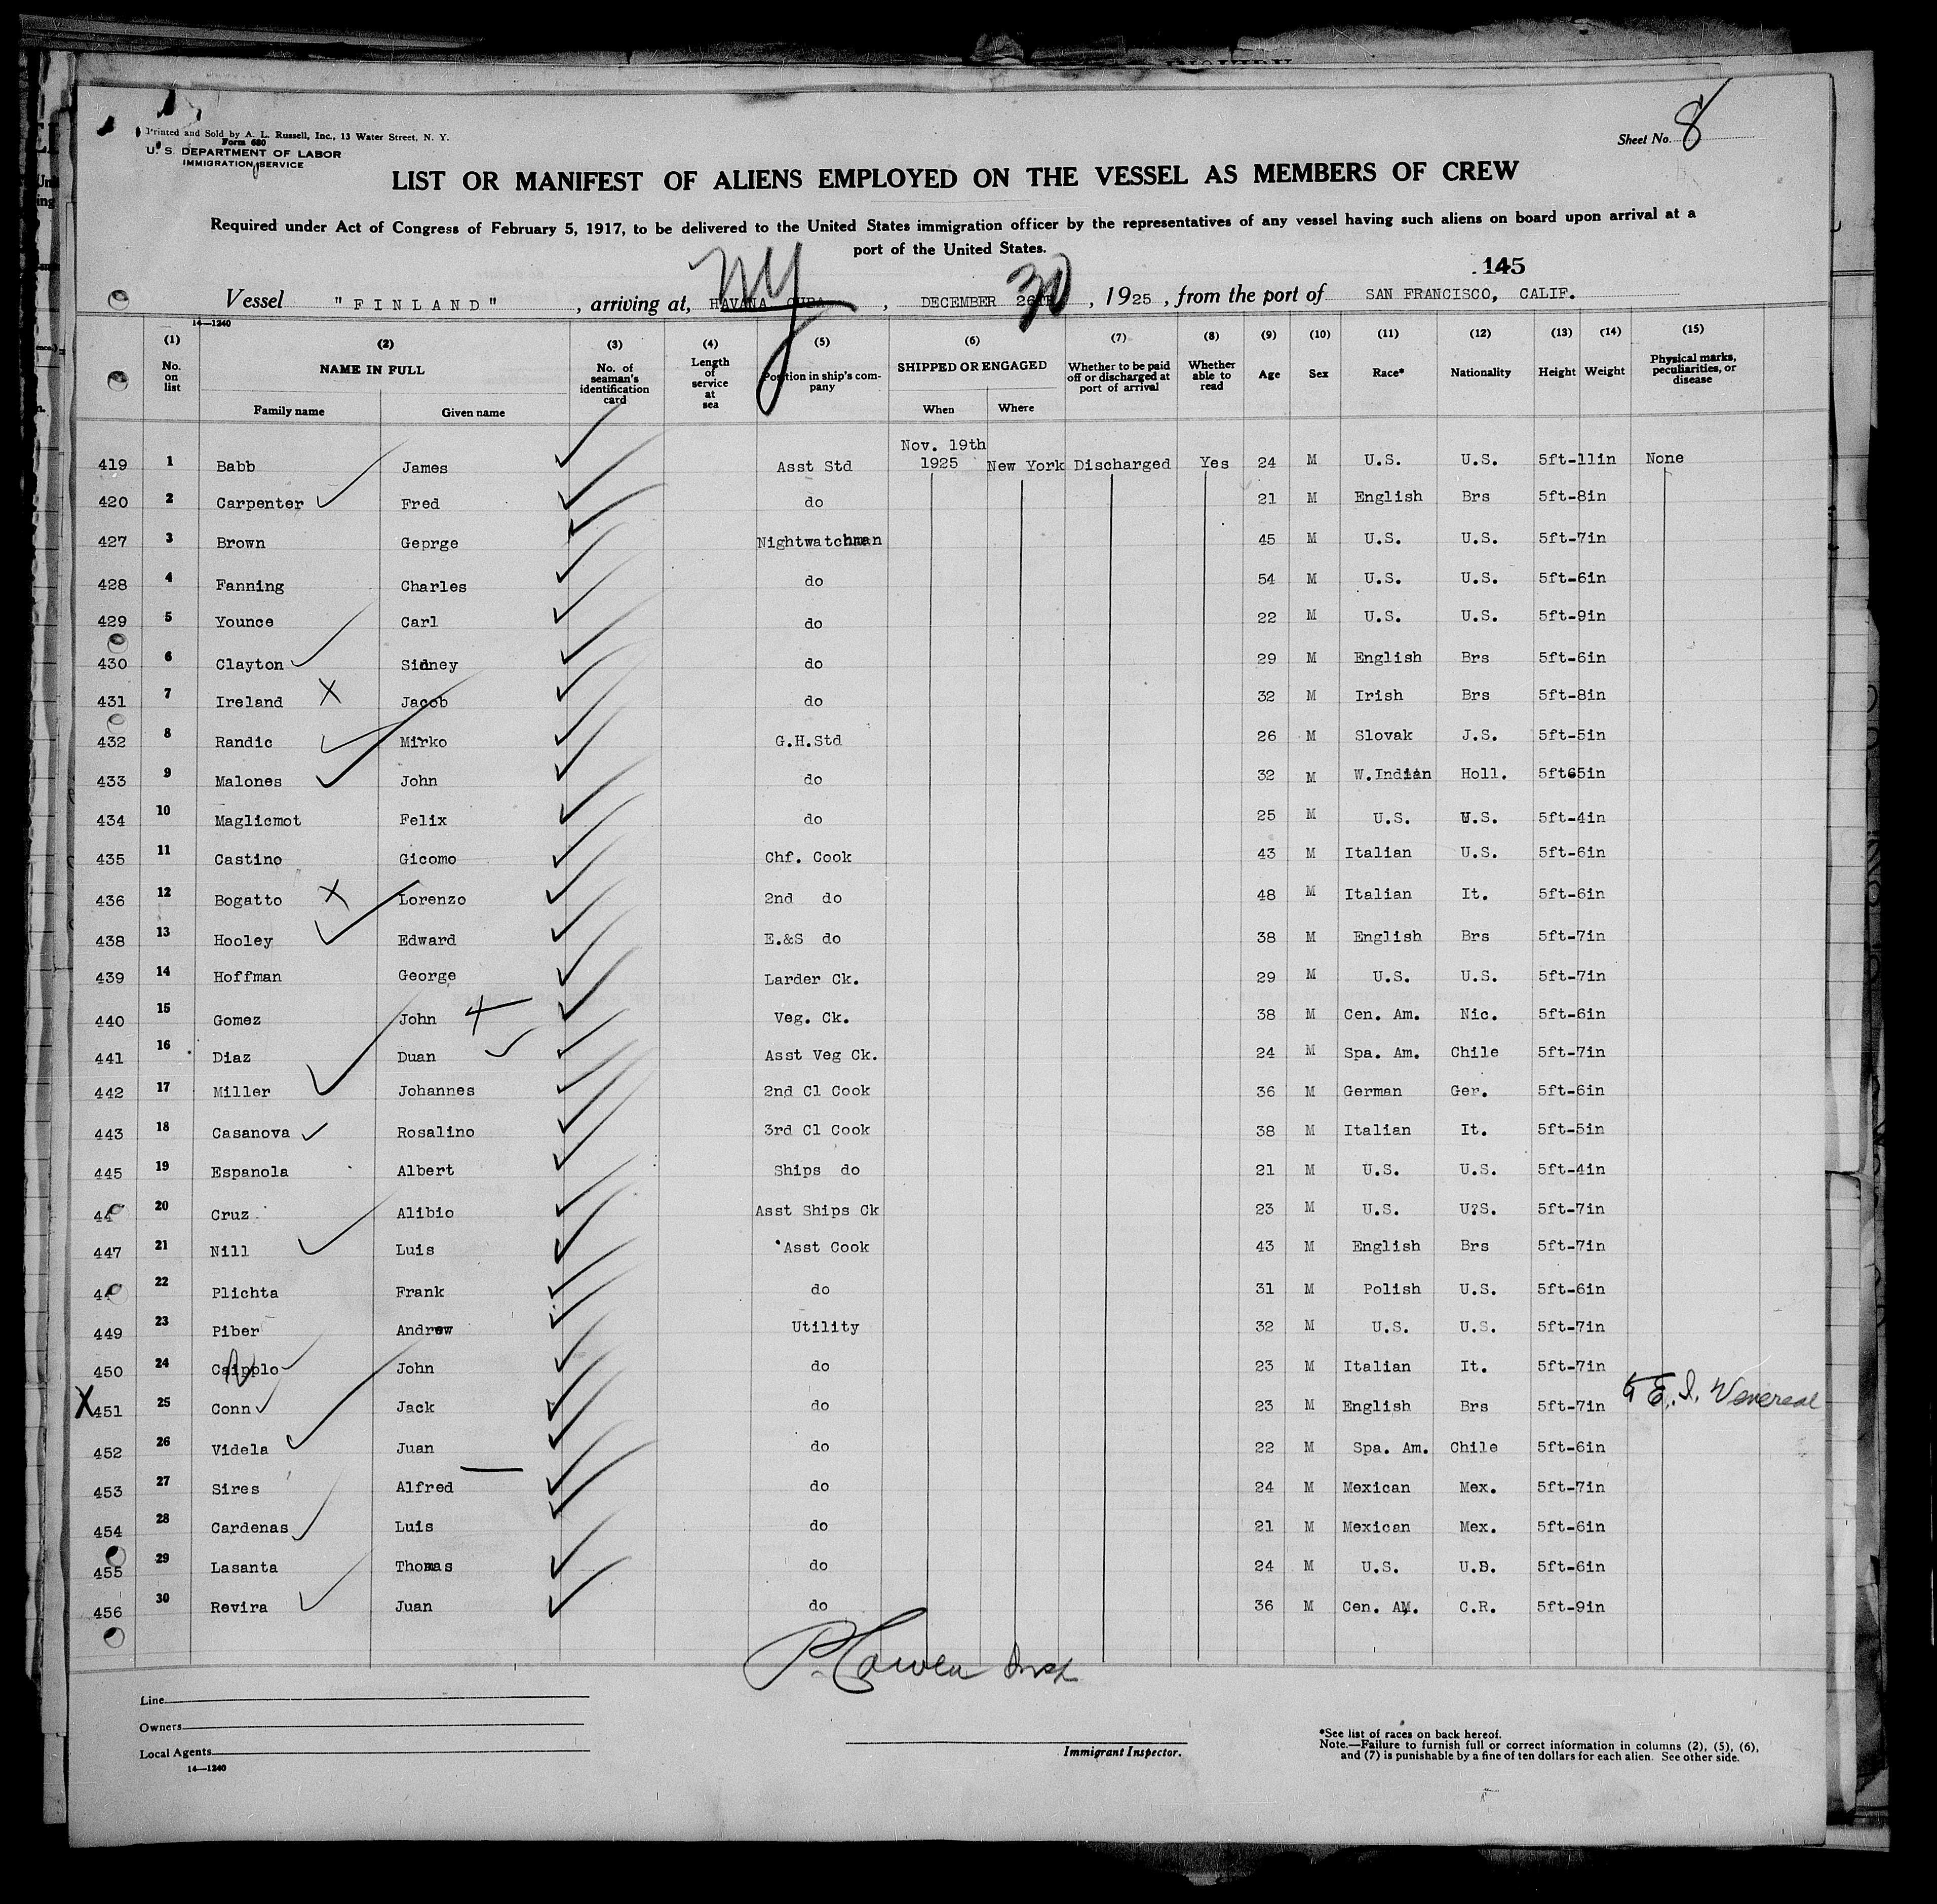 Printed and Sold by A. L. Russell, Inc., 13 Water Street, N. Y.
Form 680
U. S. DEPARTMENT OF LABOR
IMMIGRATION SERVICE
Sheet No. 8
LIST OR MANIFEST OF ALIENS EMPLOYED ON THE VESSEL AS MEMBERS OF CREW
Required under Act of Congress of February 5, 1917, to be delivered to the United States immigration officer by the representatives of any vessel having such aliens on board upon arrival at a
port of the United States.
145
NY 30
Vessel "FINLAND", arriving at, HAVANA CUBA, DECEMBER 26TH, 1925, from the port of SAN FRANCISCO, CALIF.
14—1240
(1) (2) (3) (4) (5) (6) (7) (8) (9) (10) (11) (12) (13) (14) (15)
No. on list NAME IN FULL Family name Given name No. of seaman's identification card Length of service at sea Position in ship's company SHIPPED OR ENGAGED When Where Whether to be paid off or discharged at port of arrival Whether able to read Age Sex Race* Nationality Height Weight Physical marks, peculiarities, or disease
Nov. 19th
419 1 Babb James Asst Std 1925 New York Discharged Yes 24 M U.S. U.S. 5ft-11in None
420 2 Carpenter Fred do 21 M English Brs 5ft-8in
427 3 Brown Geprge Nightwatchman 45 M U.S. U.S. 5ft-7in
428 4 Fanning Charles do 54 M U.S. U.S. 5ft-6in
429 5 Younce Carl do 22 M U.S. U.S. 5ft-9in
430 6 Clayton Sidney do 29 M English Brs 5ft-6in
431 7 Ireland X Jacob do 32 M Irish Brs 5ft-8in
432 8 Randic Mirko G.H.Std 26 M Slovak J.S. 5ft-5in
433 9 Malones John do 32 M W.Indian Holl. 5ft65in
434 10 Maglicmot Felix do 25 M U.S. U.S. 5ft-4in
435 11 Castino Gicomo Chf. Cook 43 M Italian U.S. 5ft-6in
436 12 Bogatto X Lorenzo 2nd do 48 M Italian It. 5ft-6in
438 13 Hooley Edward E.&S do 38 M English Brs 5ft-7in
439 14 Hoffman George Larder Ck. 29 M U.S. U.S. 5ft-7in
440 15 Gomez John Veg. Ck. 38 M Cen. Am. Nic. 5ft-6in
441 16 Diaz Duan Asst Veg Ck. 24 M Spa. Am. Chile 5ft-7in
442 17 Miller Johannes 2nd Cl Cook 36 M German Ger. 5ft-6in
443 18 Casanova Rosalino 3rd Cl Cook 38 M Italian It. 5ft-5in
445 19 Espanola Albert Ships do 21 M U.S. U.S. 5ft-4in
44 20 Cruz Alibio Asst Ships Ck 23 M U.S. U?S. 5ft-7in
447 21 Nill Luis Asst Cook 43 M English Brs 5ft-7in
44 22 Plichta Frank do 31 M Polish U.S. 5ft-6in
449 23 Piber Andrew Utility 32 M U.S. U.S. 5ft-7in
450 24 John do 23 M Italian It. 5ft-7in
X 451 25 Conn Jack do 23 M English Brs 5ft-7in E.I. Venereal
452 26 Videla Juan do 22 M Spa. Am. Chile 5ft-6in
453 27 Sires Alfred do 24 M Mexican Mex. 5ft-7in
454 28 Cardenas Luis do 21 M Mexican Mex. 5ft-6in
455 29 Lasanta Thomas do 24 M U.S. U.S. 5ft-6in
456 30 Revira Juan do 36 M Cen. AM. C.R. 5ft-9in
Line
Owners
Local Agents
14—1240
Immigrant Inspector.
*See list of races on back hereof.
Note.—Failure to furnish full or correct information in columns (2), (5), (6),
and (7) is punishable by a fine of ten dollars for each alien. See other side.